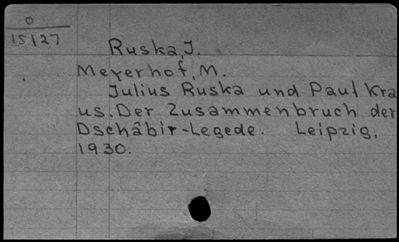 0
15127
Ruska, J.
Meyerhof, M.
Julius Ruska und Paul Kra
us. Der Zusammenbruch der
Dschâbir-Legede. Leipzig,
1930.